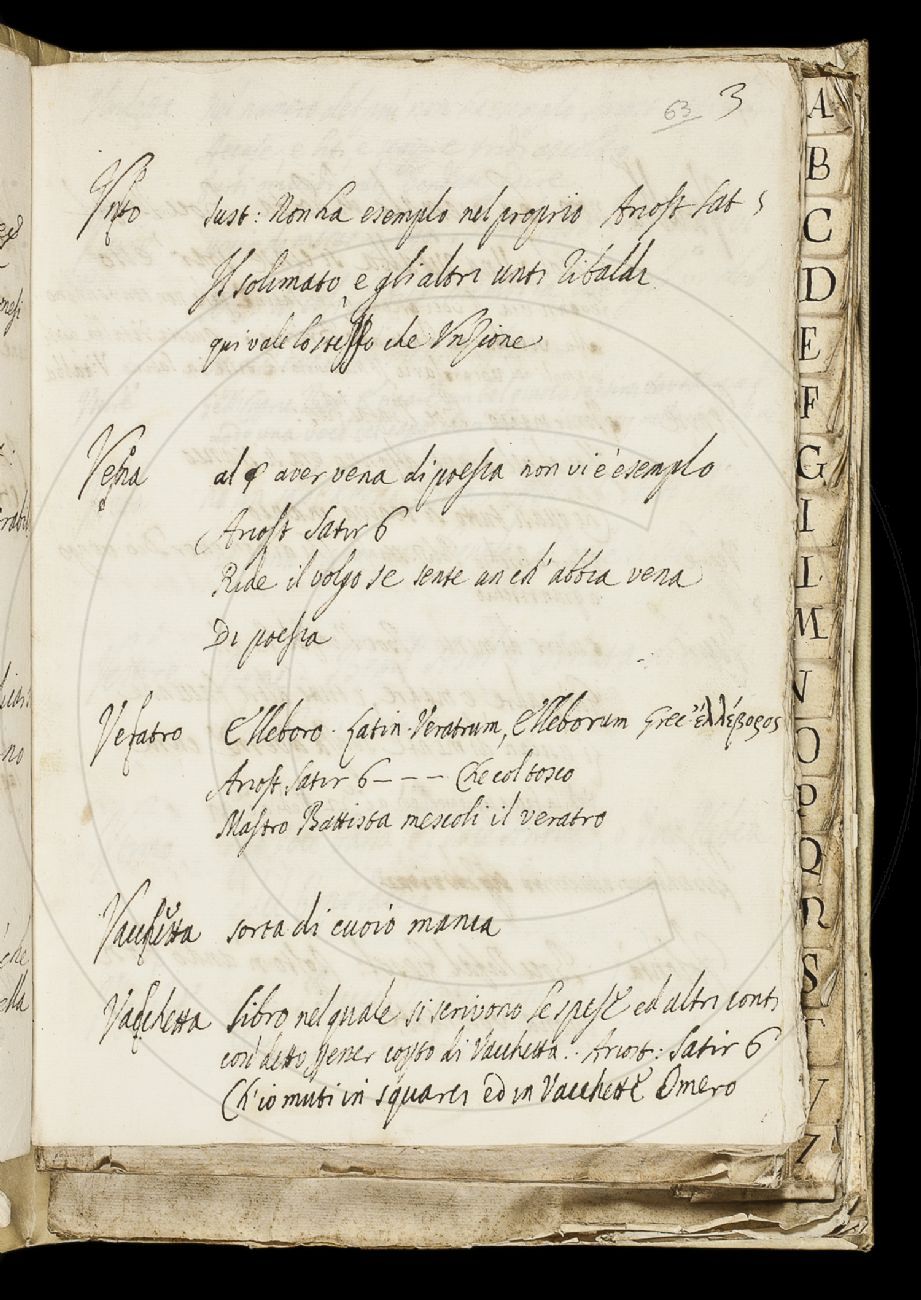 63 3
Unto sust: Non ha esempio nel proprio Ariost Sat 5
Il solimato, e gli altri unti ribaldi
qui vale lo stesso che Unzione
Vena al § aver vena di poesia non vi è esemplo
Ariost Satir 6
Ride il volgo se sente un ch' abbia vena
Di poesia
Veratro Elleboro. Latin. Veratrum, Elleborum Grec ἑλλέβορος
Ariost Satir 6 - - - Che col tosco
Mastro Battista mescoli il veratro
Vacchetta sorta di cuoio manca
Vacchetta Libro nel quale si scrivono le spese ed altri conti
così detto p esser copto di Vacchetta. Ariost: Satir 6
Ch'io muti in squarci ed in Vacchette Omero
A
B
C
D
E
F
G
I
L
M
N
O
P
Q
R
S
T
V
Z